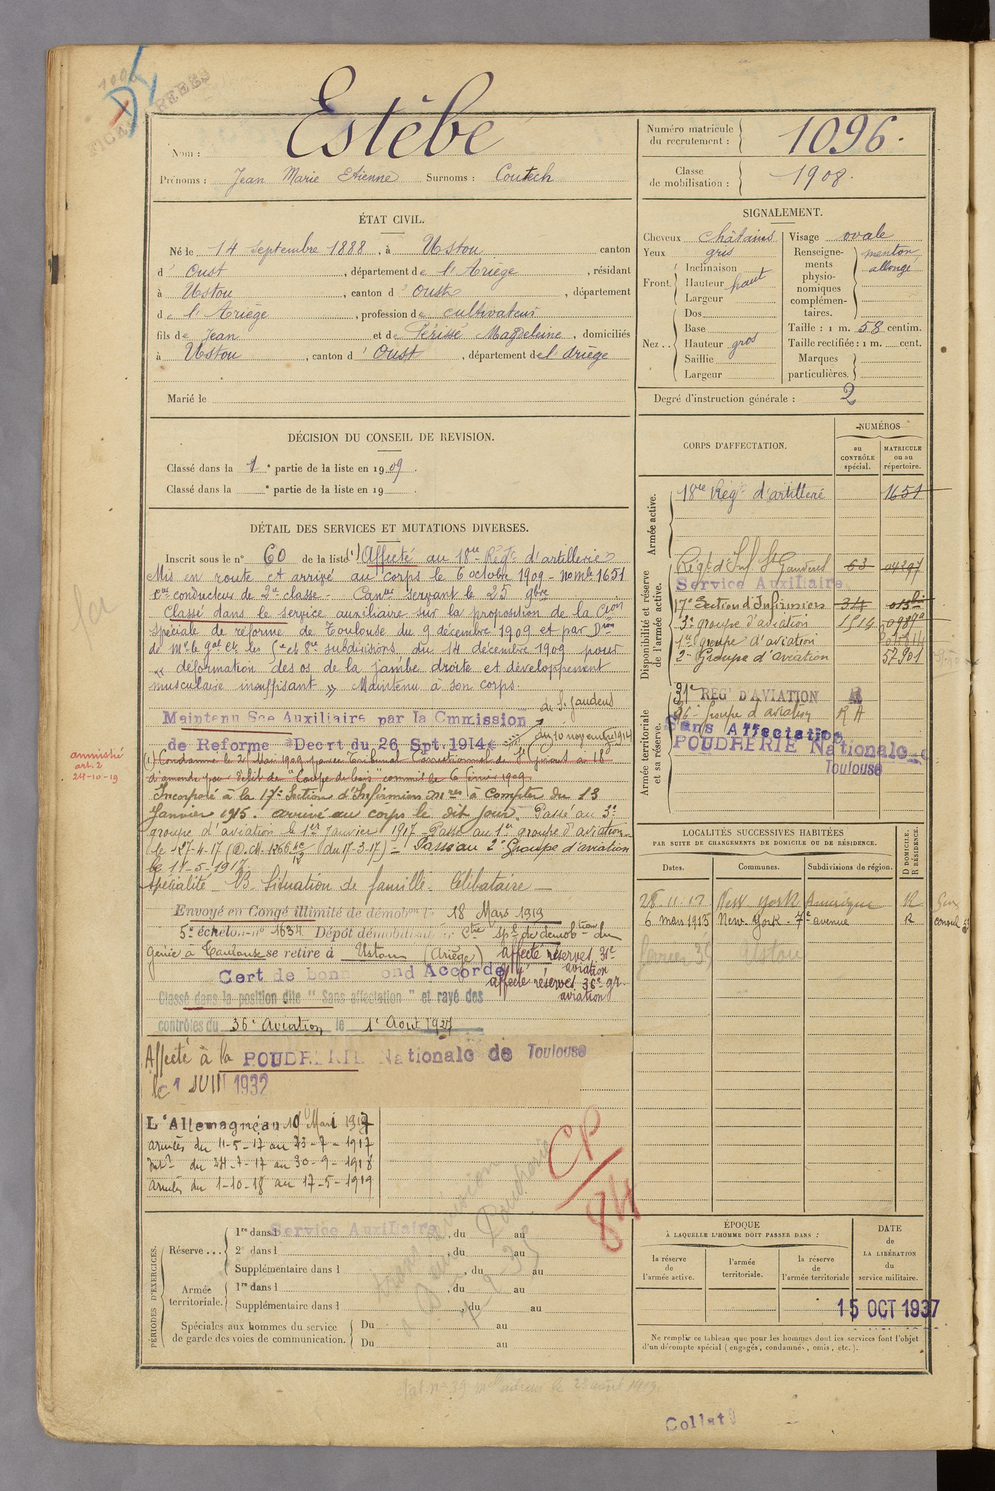 Nom : Estèbe
Prénoms : Jean Marie Etienne Surnoms : Coutech
Numéro matricule du recrutement : 1096.
Classe de mobilisation : 1908.
ÉTAT CIVIL.
Né le 14 Septembre 1888, à Ustou canton
d' Oust, département de l'Ariège, résidant
à Ustou, canton d' Oust, département
de l'Ariège, profession de cultivateur
fils de Jean et de Périssé Magdeleine, domiciliés
à Ustou, canton d' Oust, département de l'Ariège
Marié le
SIGNALEMENT.
Cheveux châtains
Yeux gris
Front. Inclinaison
Hauteur haut
Largeur
Nez.. Dos
Base
Hauteur gros
Saillie
Largeur
Visage ovale
Renseignements physionomiques complémentaires. menton allongé
Taille : 1 m. 58 centim.
Taille rectifiée : 1 m. cent.
Marques particulières.
Degré d'instruction générale : 2
DÉCISION DU CONSEIL DE REVISION.
Classé dans la 1e partie de la liste en 1909.
Classé dans la e partie de la liste en 19 .
DÉTAIL DES SERVICES ET MUTATIONS DIVERSES.
Inscrit sous le n° 60 de la liste (1) Affecté au 18me Régt d'artillerie
Mis en route et arrivé au corps le 6 octobre 1909 - no mle 1651
conducteur de 2me classe - servant le 25
Classé dans le service auxiliaire sur la proposition de la Con
spéciale de réforme de Toulouse du 9 décembre 1909 et par Don
de Mr le gal ct les 5e et 8me subdivisions, du 14 décembre 1909 pour
« déformation des os de la jambe droite et développement
musculaire insuffisant » Maintenu à son corps.
Maintenu Sce Auxiliaire par la Cmmission de St Gaudens
de Reforme Decrt du 26 Spt. 1914 du 10 novembre 1914
(1) Condamné le 21 Mai 1909 par le Tribunal Correctionnel de St Girons à 16f
d'amende pour délit de "Coupe de bois" commis le 6 février 1909.
amnistié
art. 2
24-10-19
Incorporé à la 17e Section d'Infirmiers Mres à Compter du 13
Janvier 1915. arrivé au corps le dit jour. Passé au 3e
groupe d'aviation le 1er Janvier 1917 - Passé au 1er groupe d'aviation
le 27-4-17 (du 17-3-17) - Passé au 2e Groupe d'aviation
le 11-5-1917
Spécialité Situation de famille. Célibataire
Envoyé en Congé illimité de démobon le 18 Mars 1919
5e échelon n° 1634 Dépôt démobilisateur du
Génie à Toulouse se retire à Ustou (Ariège) affecté réserve 31e aviation
Cert de bonne Accordé affecté réserve 36e gr. aviation
Classé dans la position dite "Sans affectation" et rayé des
contrôles du 36e Aviation le 1er Aout 1927
Affecté à la POUDRERIE Nationale de Toulouse
le 1 JUIN 1932
L'Allemagne au 10 Mai 1917
armées du 11-5-17 au 23-7-1917
Intr du 24-7-17 au 30-9-1918
armées du 1-10-18 au 17-5-1919
CP
84
CORPS D'AFFECTATION.
NUMÉROS
au CONTRÔLE spécial.
MATRICULE ou au répertoire.
Armée active.
18me Régt d'artillerie 1651
Disponibilité et réserve de l'armée active.
Régt d'Inf. St Gaudens 53 04297
Service Auxiliaire
17e Section d'Infirmiers 314
3e groupe d'aviation 1514
1er groupe d'aviation
2e Groupe d'aviation 57901
Armée territoriale et sa réserve.
31e REGt D'AVIATION
36e Groupe d'aviation R A
Sans Affectation
POUDRERIE Nationale de
Toulouse
LOCALITÉS SUCCESSIVES HABITÉES
PAR SUITE DE CHANGEMENTS DE DOMICILE OU DE RÉSIDENCE.
D DOMICILE. R RÉSIDENCE.
Dates. Communes. Subdivisions de région.
28.11.17 New York Amérique R
6 mars 1913 New-York - 7e avenue R
Ustou
PÉRIODES D'EXERCICES.
Réserve... 1re dans l Service Auxiliaire, du au
2e dans l , du au
Supplémentaire dans l , du au
Armée territoriale. 1re dans l , du au
Supplémentaire dans l , du au
Spéciales aux hommes du service de garde des voies de communication. Du au
Du au
ÉPOQUE
À LAQUELLE L'HOMME DOIT PASSER DANS :
la réserve de l'armée active.
l'armée territoriale.
la réserve de l'armée territoriale
DATE DE LA LIBÉRATION du service militaire.
15 OCT 1937
Ne remplir ce tableau que pour les hommes dont les services font l'objet
d'un décompte spécial (engagés, condamnés, omis, etc.).
Collat